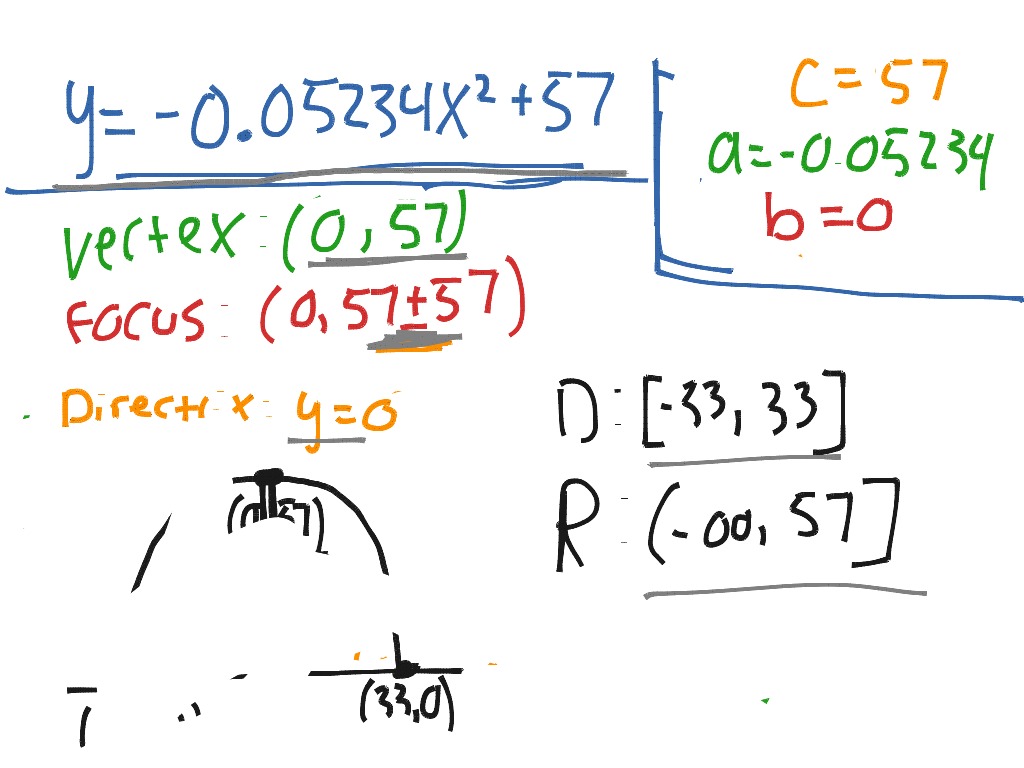 y = -0.05234x² + 57
c = 57
a = -0.05234
b = 0
Vertex: (0, 57)
Focus: (0, 57 ± 57)
Directrix: y = 0
D: [-33, 33]
R: (-∞, 57]
(33,0)